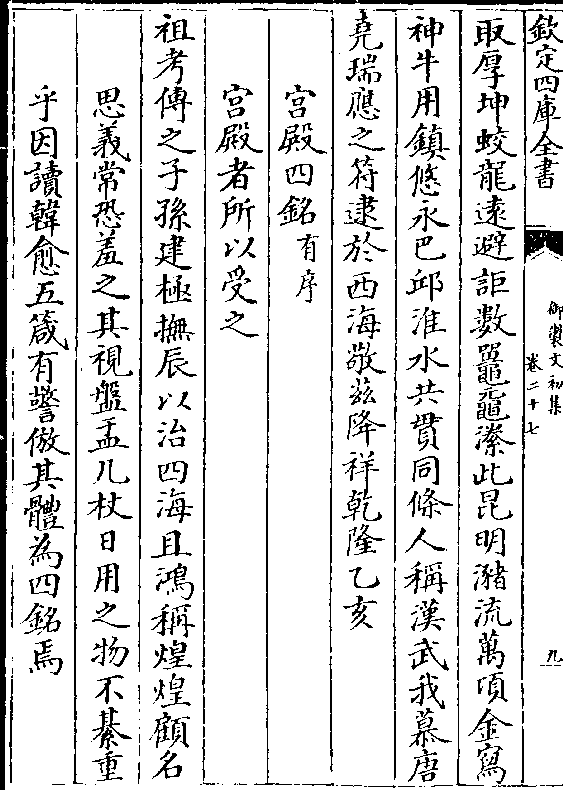 欽定四庫全書
御製文初集
卷二十七
九
取厚坤蛟龍遠避詎數鼉黿潫此昆明瀦流萬頃金寫
神牛用鎮悠永巴邱淮水共貫同條人稱漢武我慕唐
堯瑞應之符逮於西海敬兹降祥乾隆乙亥
宫殿四銘有序
宫殿者所以受之
祖考傳之子孫建極撫辰以治四海且鴻稱煌煌顧名
思義常恐羞之其視盤盂几杖日用之物不綦重
乎因讀韓愈五箴有警倣其體為四銘焉